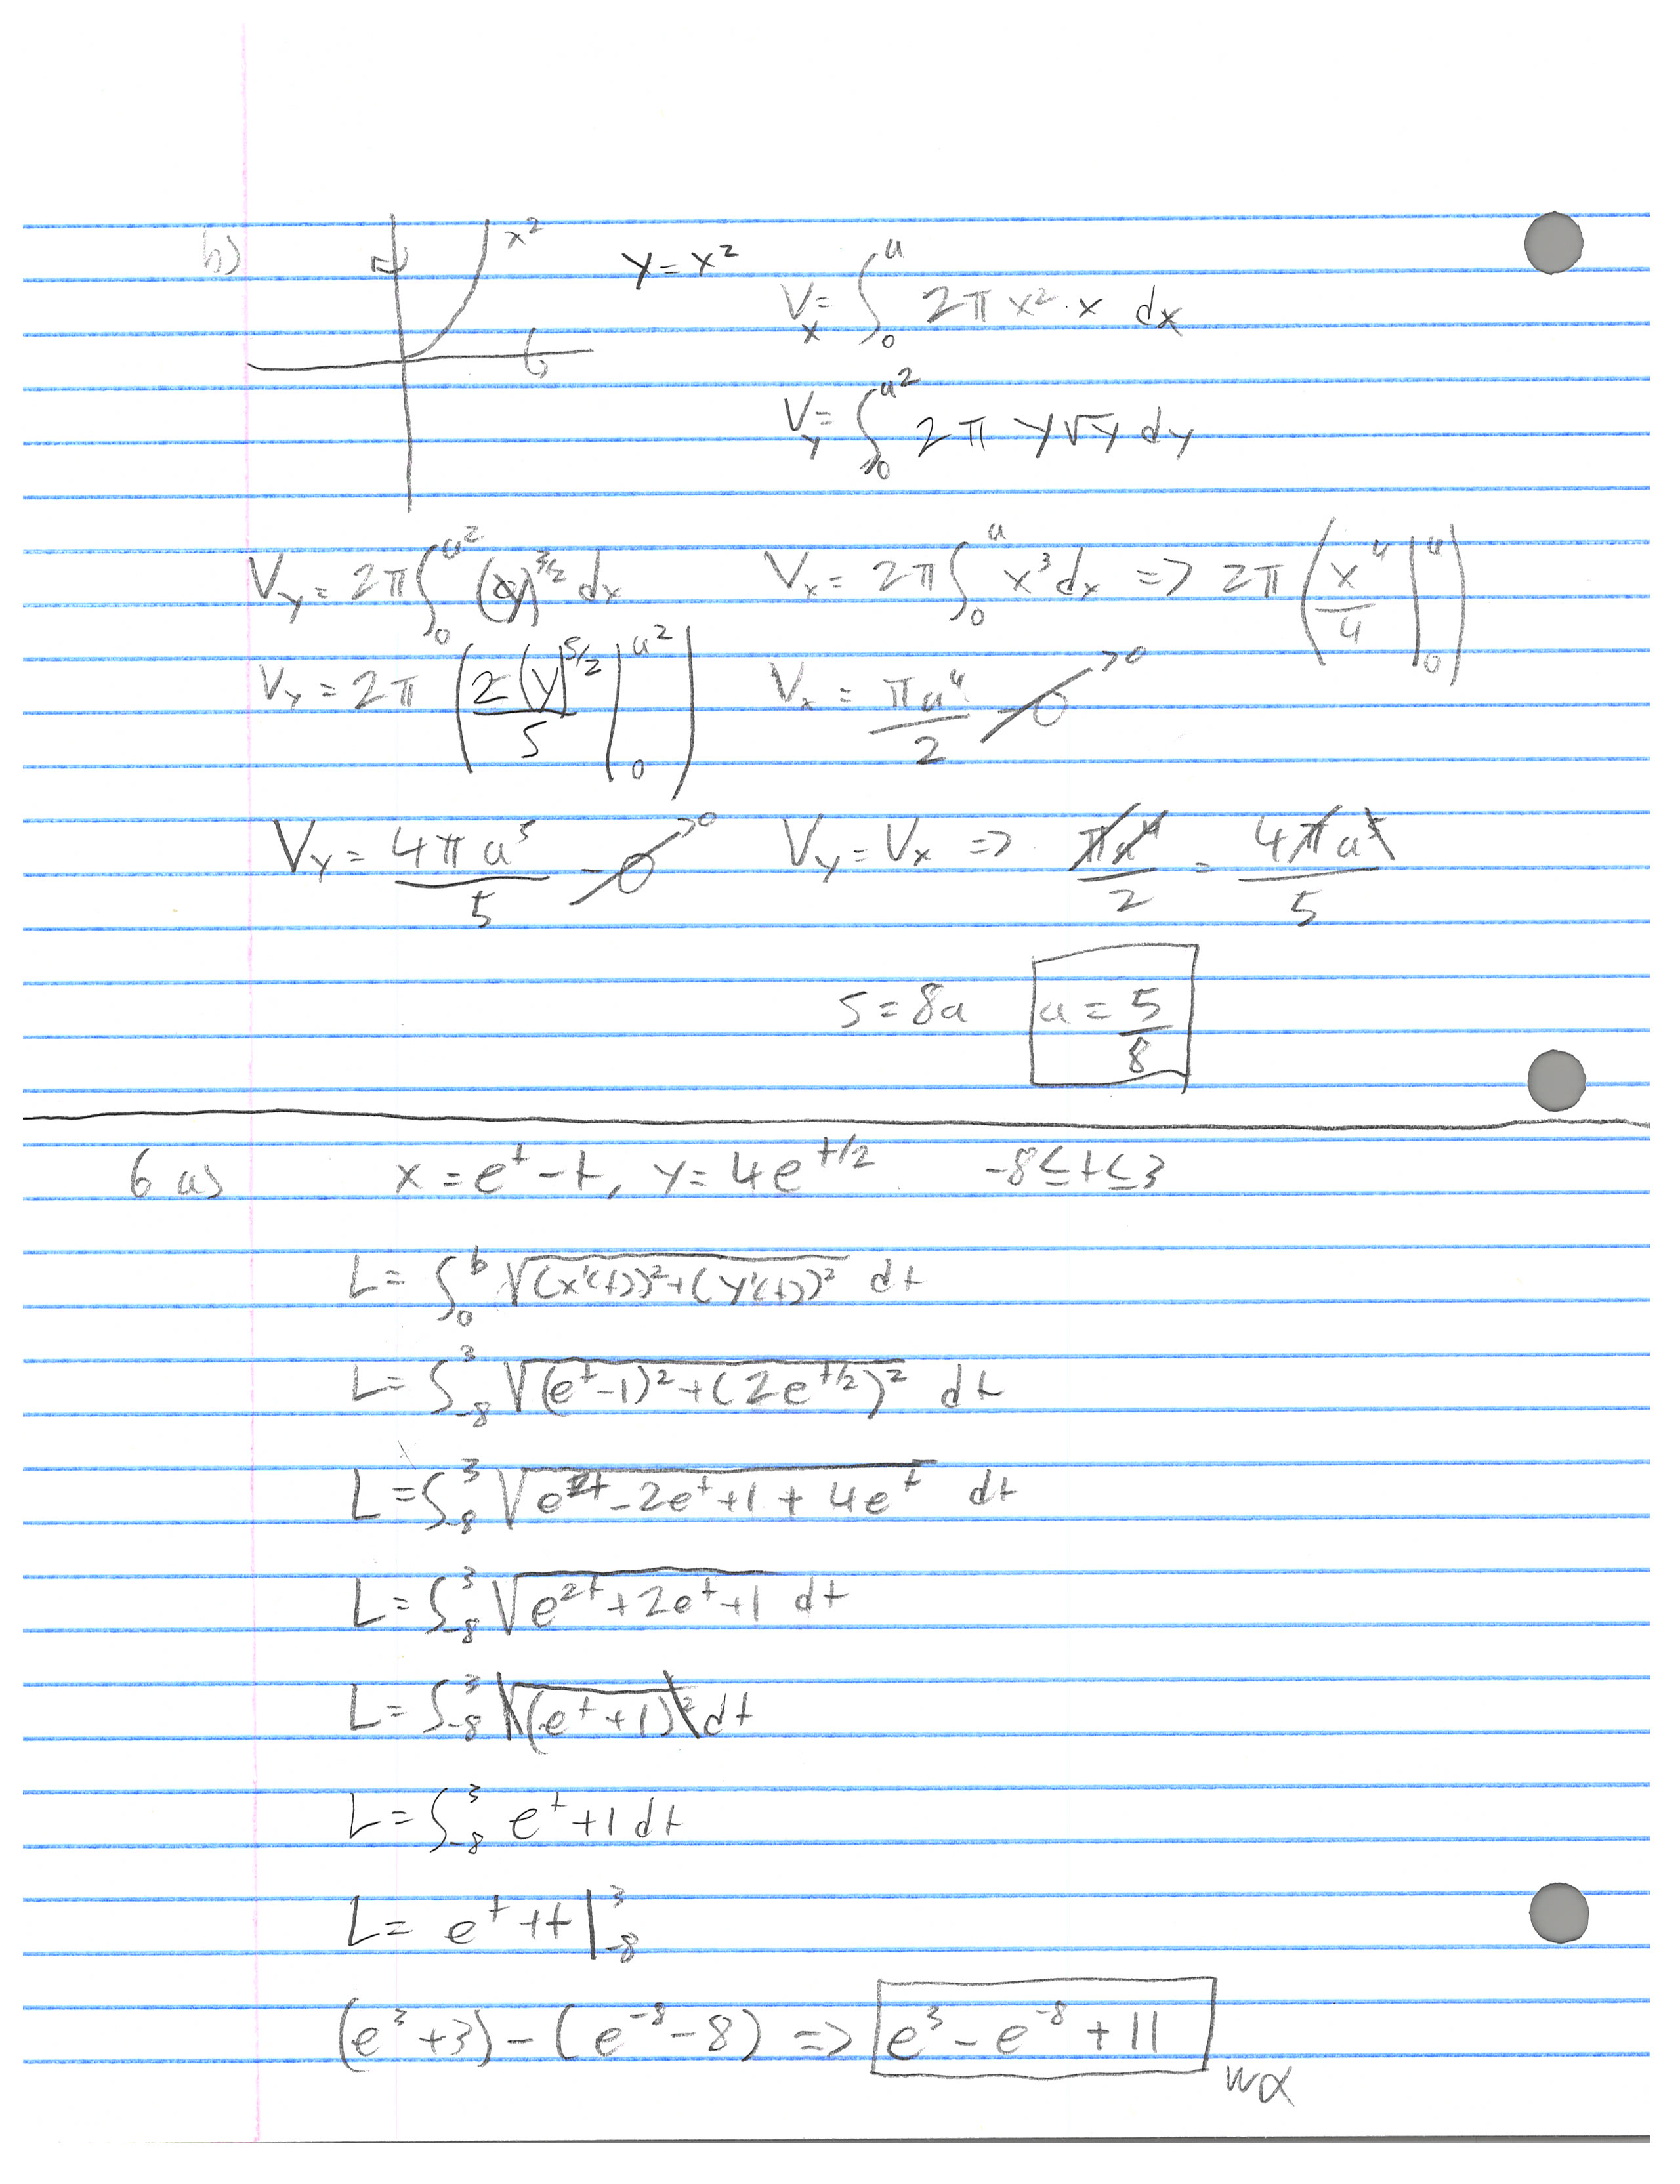 b) x² y = x² Vx = ∫₀ᵃ 2π x² · x dx
Vy = ∫₀^(a²) 2π y√y dy
Vy = 2π ∫₀^(a²) (y)^(3/2) dx Vx = 2π ∫₀ᵃ x³ dx => 2π (x⁴/4 |₀ᵃ)
Vy = 2π (2(y)^(5/2)/5 |₀^(a²)) Vx = πa⁴/2 - 0 → 0
Vy = 4πa⁵/5 - 0 → 0 Vy = Vx => πa⁴/2 = 4πa⁵/5
5 = 8a a = 5/8
6 a) x = e^t - t, y = 4e^(t/2) -8 ≤ t ≤ 3
L = ∫₀ᵇ √((x'(t))² + (y'(t))²) dt
L = ∫₋₈³ √((e^t - 1)² + (2e^(t/2))²) dt
L = ∫₋₈³ √(e^(2t) - 2e^t + 1 + 4e^t) dt
L = ∫₋₈³ √(e^(2t) + 2e^t + 1) dt
L = ∫₋₈³ √((e^t + 1)²) dt
L = ∫₋₈³ e^t + 1 dt
L = e^t + t |₋₈³
(e³ + 3) - (e⁻⁸ - 8) => e³ - e⁻⁸ + 11
wα